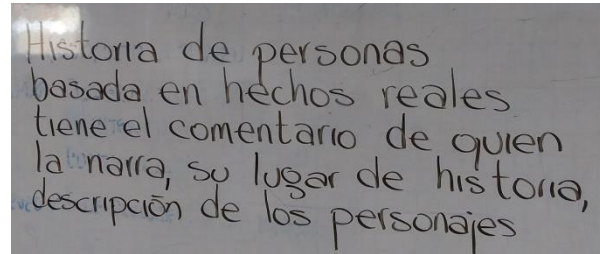 Historia de personas
basada en hechos reales
tiene el comentario de quien
la narra, su lugar de historia,
descripción de los personajes